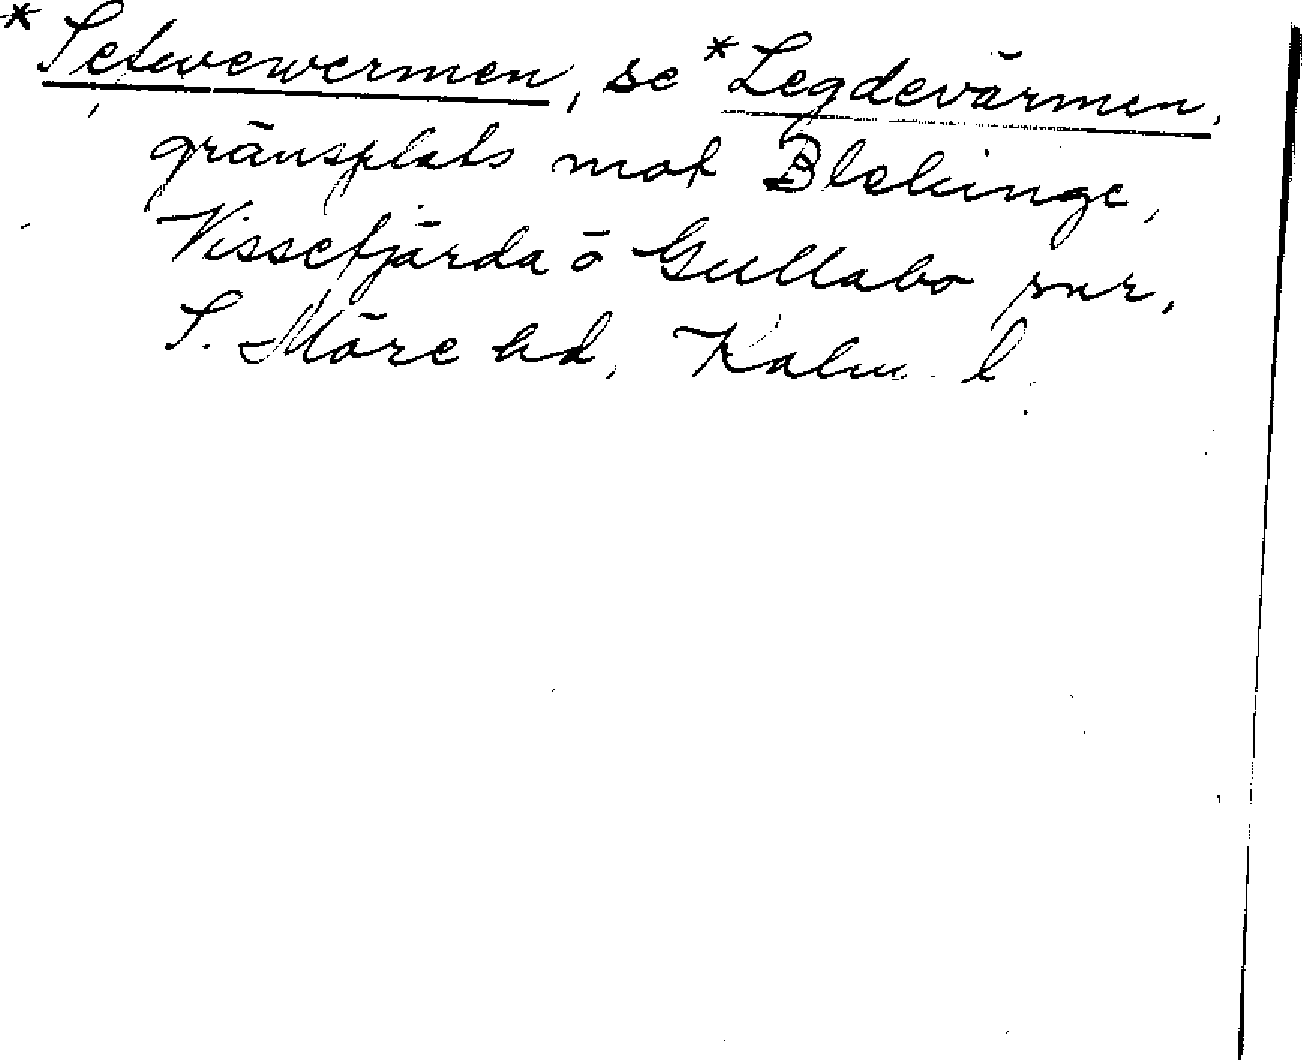 *Setwewermen, se *Legdevärmen,
gränsplats mot Blekinge,
Vissefjärda o Gullabo snr,
S. Möre hd, Kalm. l.